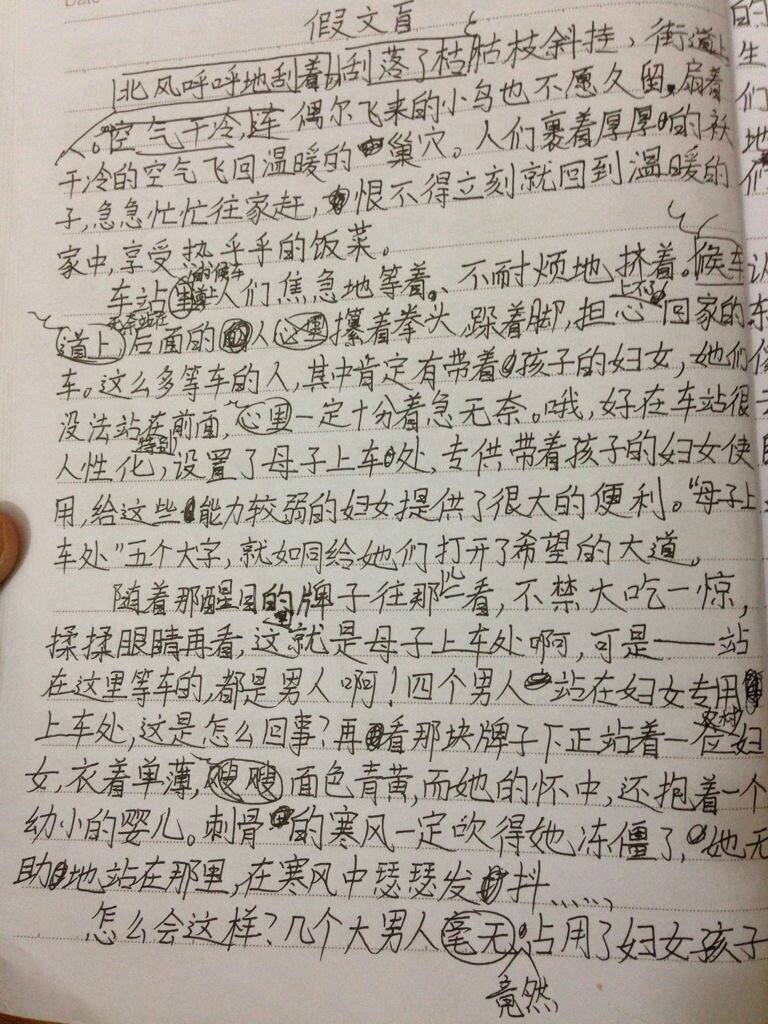 假文盲
北风呼呼地刮着,刮落了枯枯枝斜挂,街道上
人。空气干冷,连偶尔飞来的小鸟也不愿久留,扇着
干冷的空气飞回温暖的巢穴。人们裹着厚厚的袄
子,急急忙忙往家赶,恨不得立刻就回到温暖的
家中,享受热乎乎的饭菜。
车站候车道上人们焦急地等着,、不耐烦地挤着。候车
道上无奈站在后面的人心里攥着拳头,跺着脚,担心上不了回家的
车。这么多等车的人,其中肯定有带着孩子的妇女,她们
没法站在前面,心里一定十分着急无奈。哦,好在车站很
人性化,特别设置了母子上车处,专供带着孩子的妇女使
用,给这些能力较弱的妇女提供了很大的便利。“母子上
车处”五个大字,就如同给她们打开了希望的大道。
随着那醒目的牌子往那儿看,不禁大吃一惊,
揉揉眼睛再看,这就是母子上车处啊,可是——站
在这里等车的,都是男人啊!四个男人站在妇女专用
上车处,这是怎么回事?再看那块牌子下正站着一位农村妇
女,衣着单薄,嗖嗖面色青黄,而她的怀中,还抱着一个
幼小的婴儿。刺骨的寒风一定吹得她冻僵了,她无
助地站在那里,在寒风中瑟瑟发抖……
怎么会这样?几个大男人毫无占用了妇女孩子
竟然
的
生
们
地